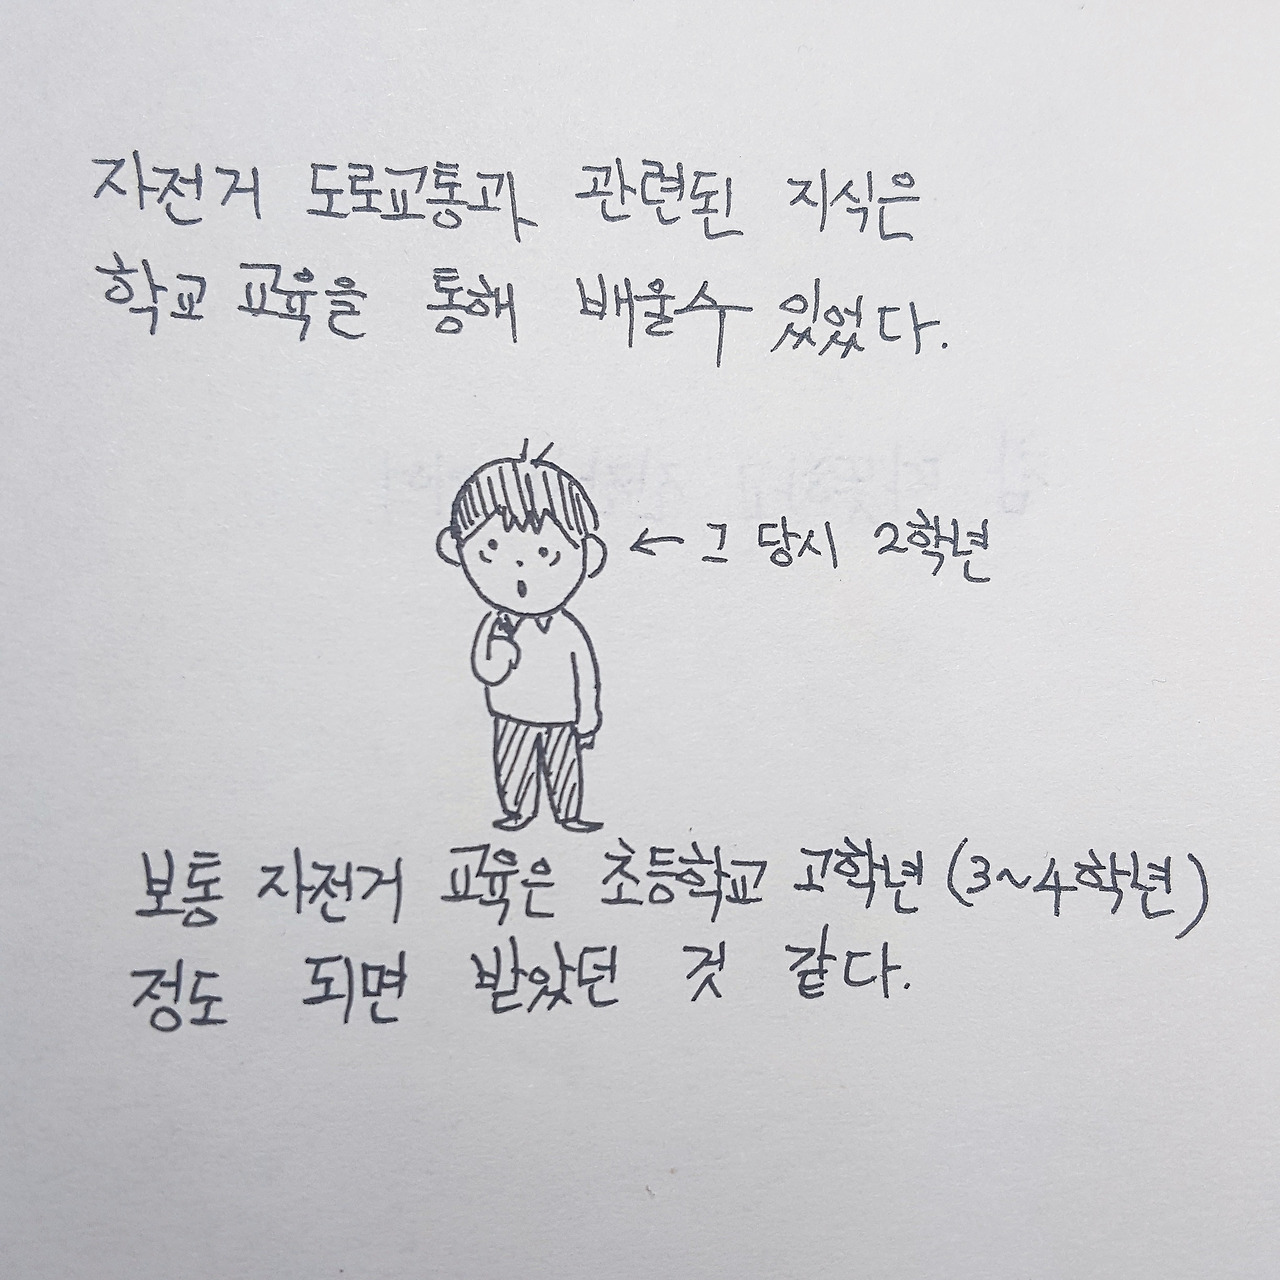 자전거 도로교통과 관련된 지식은
학교 교육을 통해 배울수 있었다.
← 그 당시 2학년
보통 자전거 교육은 초등학교 고학년 (3~4학년)
정도 되면 받았던 것 같다.